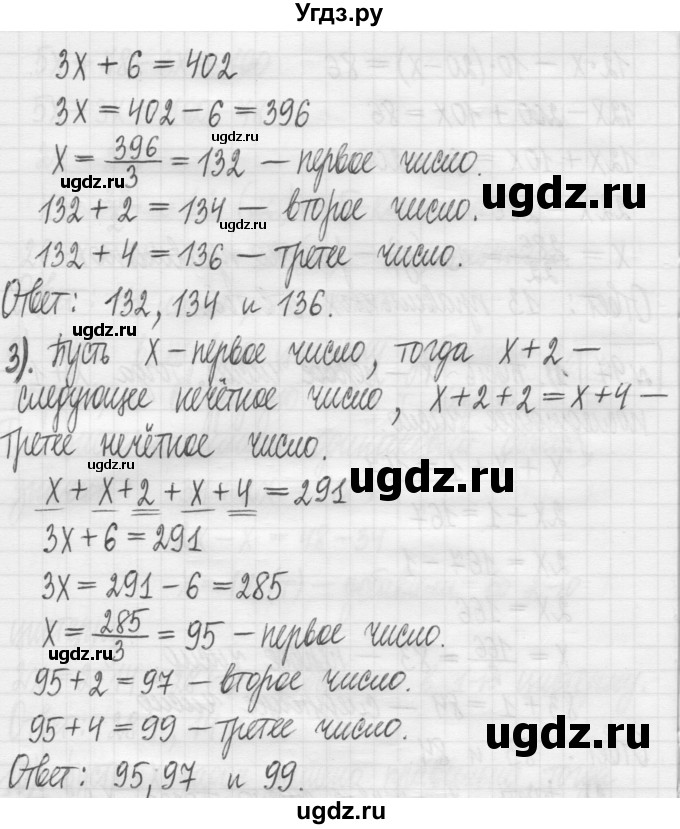 Угдз.ру
3x + 6 = 402
3x = 402 - 6 = 396
ugdz.ru
x = 396/3 = 132 — первое число.
ugdz.ru
ugdz.ru
132 + 2 = 134 — второе число.
ugdz.ru
132 + 4 = 136 — третее число.
Ответ: 132, 134 и 136.
ugdz.ru
3). Пусть x - первое число, тогда x + 2 —
следующее нечётное число, x + 2 + 2 = x + 4 —
третее нечётное число.
ugdz.ru
x + x + 2 + x + 4 = 291
ugdz.ru
3x + 6 = 291
3x = 291 - 6 = 285
x = 285/3 = 95 — первое число.
ugdz.ru
95 + 2 = 97 — второе число.
95 + 4 = 99 — третее число.
ugdz.ru
Ответ: 95, 97 и 99.
ugdz.ru
ugdz.ru